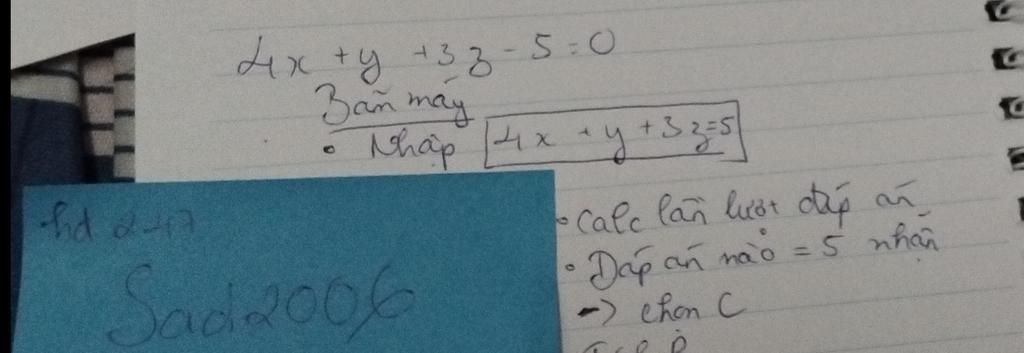 4x + y + 3z - 5 = 0
Bấm máy
• Nhập 4x + y + 3z = 5
hd 247
Sad2006
• Calc lần lượt đáp án
• Đáp án nào = 5 nhận
-> chọn C